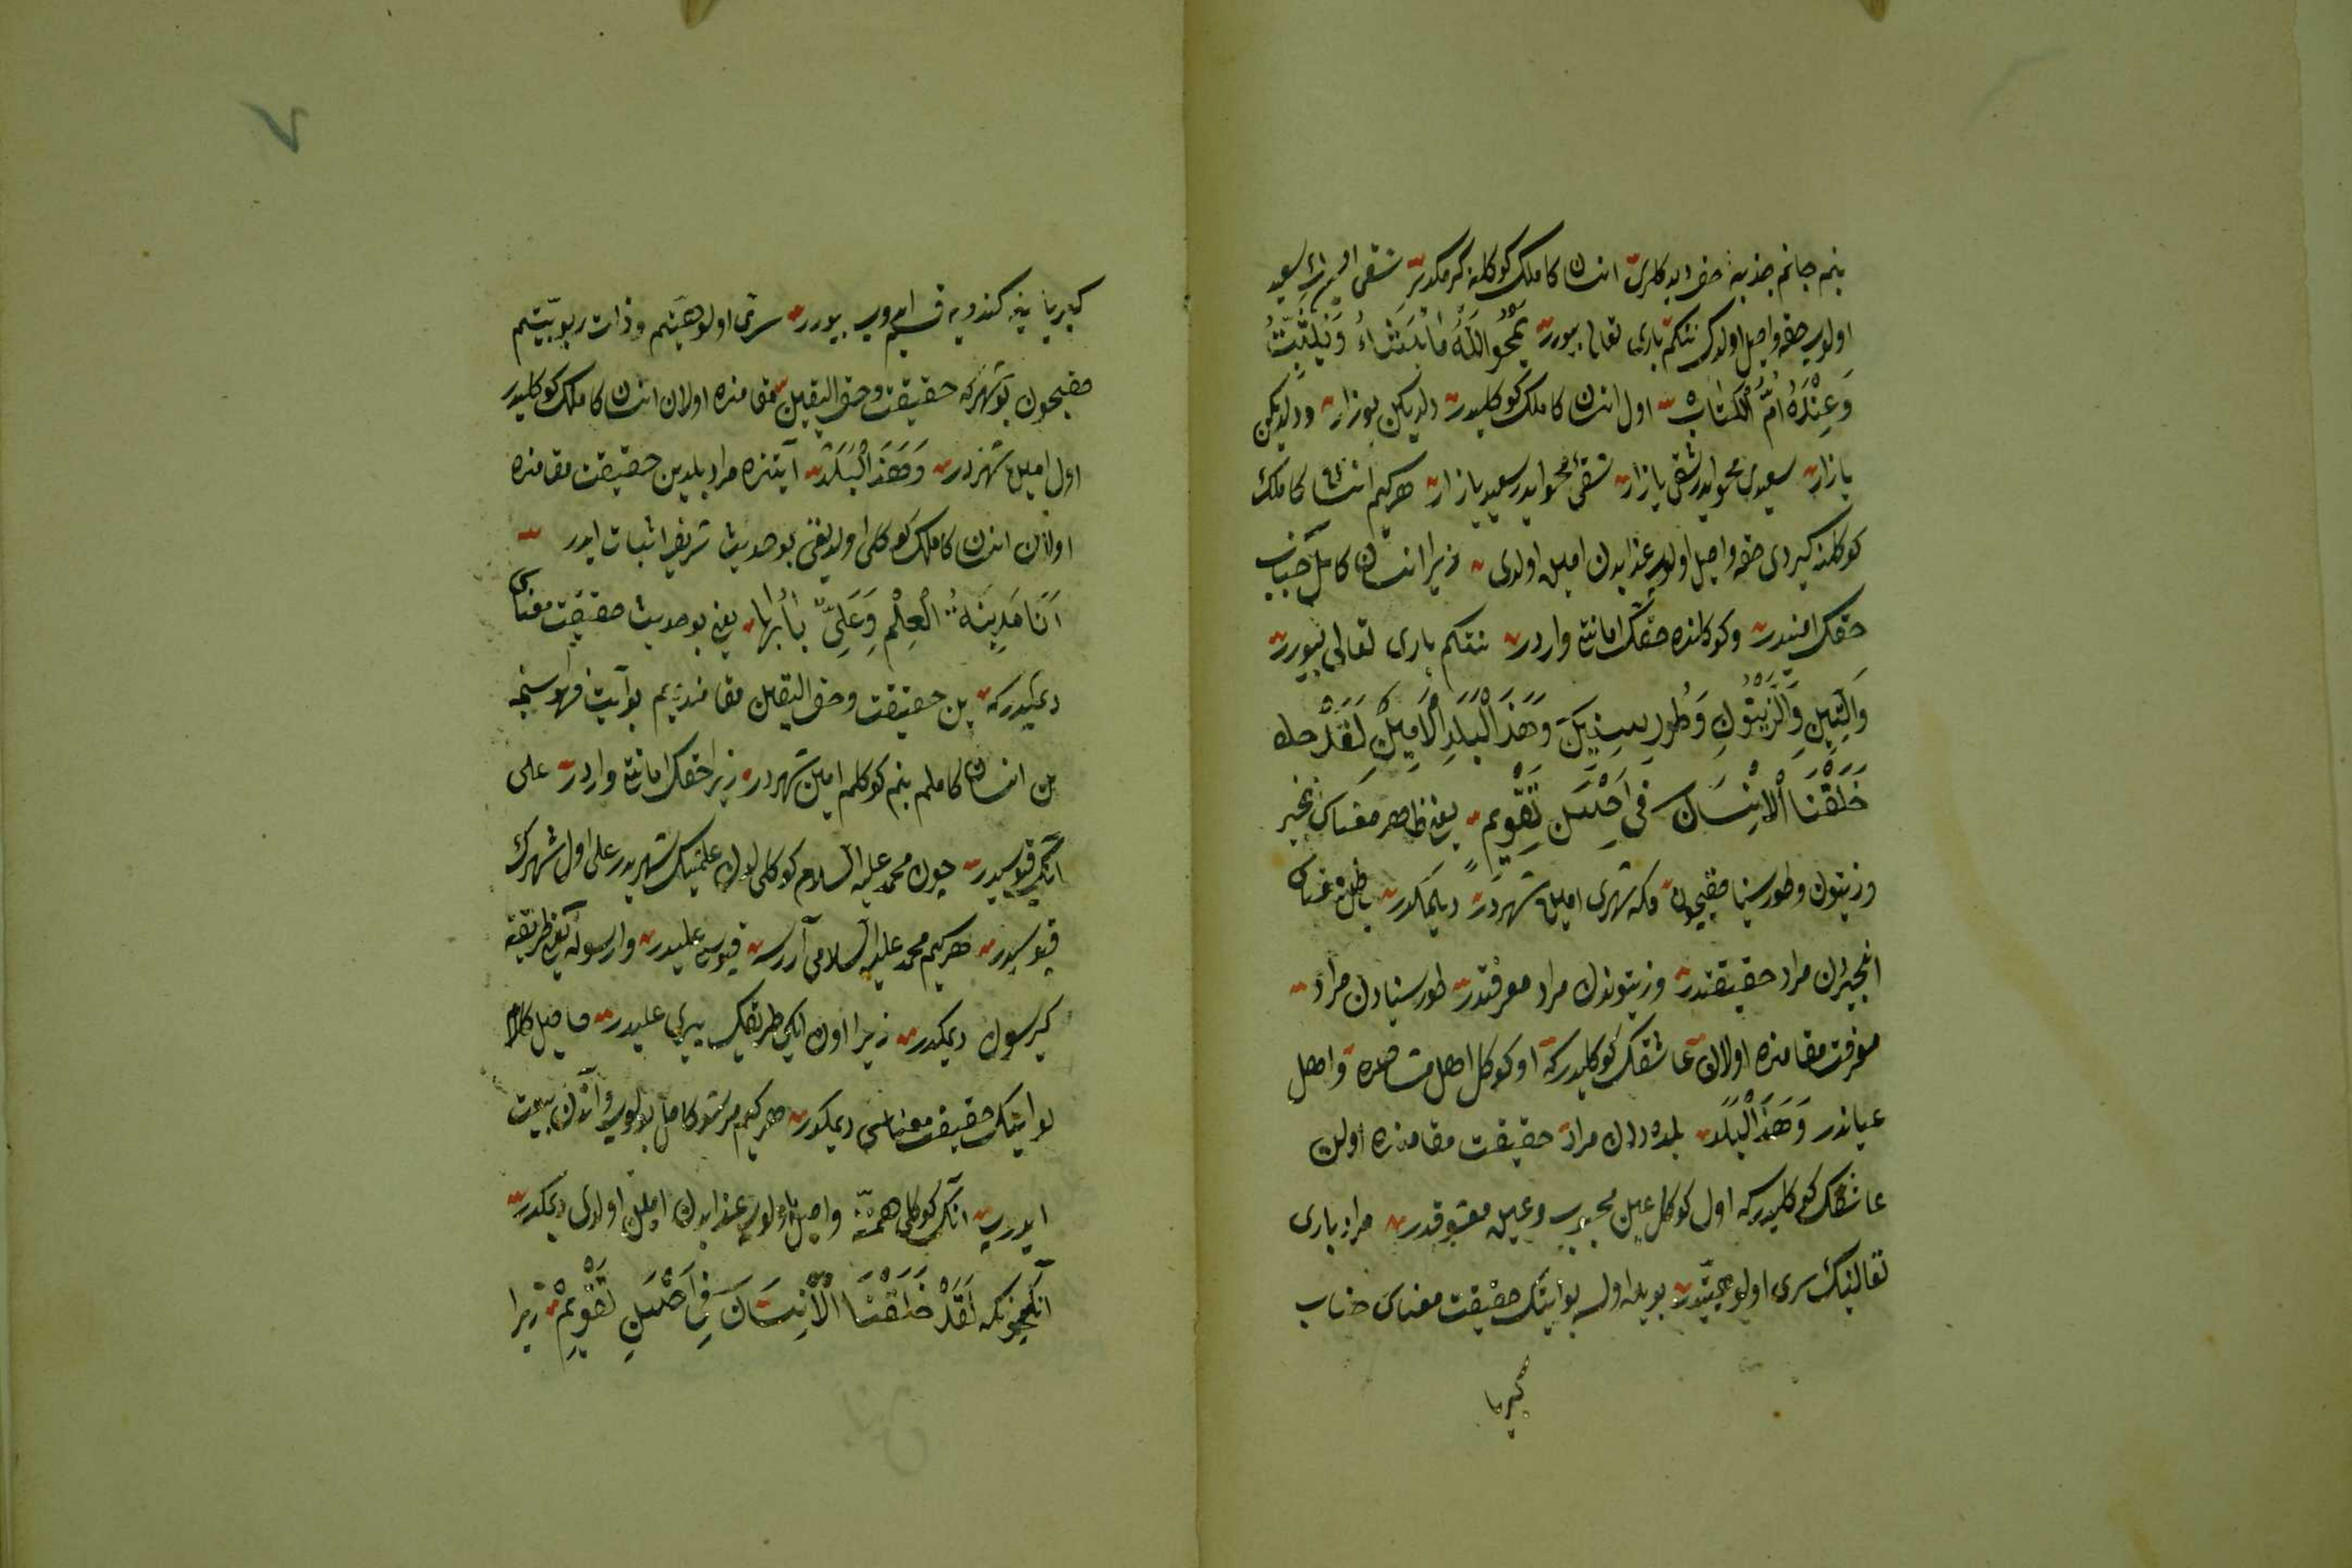 بنم جانم جذبه حق دیدکلری انسان کاملک کوکلنه کرمکدر شقی ایسه سعید
اولوب حقه واصل اولورلر نتکم باری تعالی بیورر یَمْحُو اللّٰهُ مَا یَشَاءُ وَیُثَبِّتُ
وَعِنْدَهُ اُمُّ الْکِتَابِ اول انسان کاملک کوکلیدر دلدیکن بوزار و دلدیکن
یازار سعیدی محو ایدر شقی یازار شقی محو ایدر سعید یازار هر کیم انسان کاملک
کوکلنه کیردی حقه واصل اولوب عذابدن امین اولدی زیرا انسان کامل جناب
حقک امینیدر و کوکلنده حقک امانتی واردر نتکم باری تعالی بیورر
وَالتِّینِ وَالزَّیْتُونِ وَطُورِ سِینِینَ وَهَذَا الْبَلَدِ الْاَمِینِ لَقَدْ
خَلَقْنَا الْاِنْسَانَ فِی اَحْسَنِ تَقْوِیمٍ یعنی ظاهر معناسی انجیر
وزیتون و طور سینا حقیچون و مکه شهری امین شهردر دیمکدر باطن معناسی
انجیردن مراد حقیقتدر و زیتوندن مراد معرفتدر طور سینادن مراد
معرفت مقامنده اولان عاشقک کوکلیدرکه او کوکل اهل مشاهده و اهل
عیاندر وَهَذَا الْبَلَدِ بلددن مراد حقیقت مقامنده اولن
عاشقک کوکلیدرکه اول کوکل عین محبوب و عین معشوقدر مراد باری
تعالینک سری اولوهیتدر بویله اولسه بو ایتک حقیقت معناسی جناب
کبریا
کبریا ینه کندویه قسم ایدوب بیورر سرّی اولوهیتم و ذات ربوبیّتم
حقیچون بو شهرکه حقیقت و حق الیقین مقامنده اولان انسان کاملک کوکلیدر
اول امین شهردر وَهَذَا الْبَلَدِ آیتنده مراد بلدین حقیقت مقامنده
اولان انسان کاملک کوکلی اولدیغنی بو حدیث شریف اثبات ایدر
اَنَا مَدِینَةُ الْعِلْمِ وَعَلِیٌّ بَابُهَا یعنی بو حدیث حقیقت معناسی
دیمکدرکه بن حقیقت و حق الیقین مقامندیم بو آیت فهوسنجه
بن انسان کاملم بنم کوکلم امین شهردر زیرا حقک امانتی واردر علی
آنک قپوسیدر چون محمد علیه السلام کوکلی لدن علمینک شهریدر علی اول شهرک
قپوسیدر هر کیم محمد علیه السلامی آررسه قپوسی علیدر وارسون آنک طریقنه
کیرسون دیمکدر زیرا اون ایکی طریقک پیری علیدر حاصل کلام
بو ایتک حقیقت معناسی دیمکدر هر کیم مرشد کامل بولوب و آندن بیعت
ایدرسه آنک کوکلی همّتنه واصل اولوب عذابدن امین اولدی دیمکدر
آنکچونکه لَقَدْ خَلَقْنَا الْاِنْسَانَ فِی اَحْسَنِ تَقْوِیمٍ زیرا